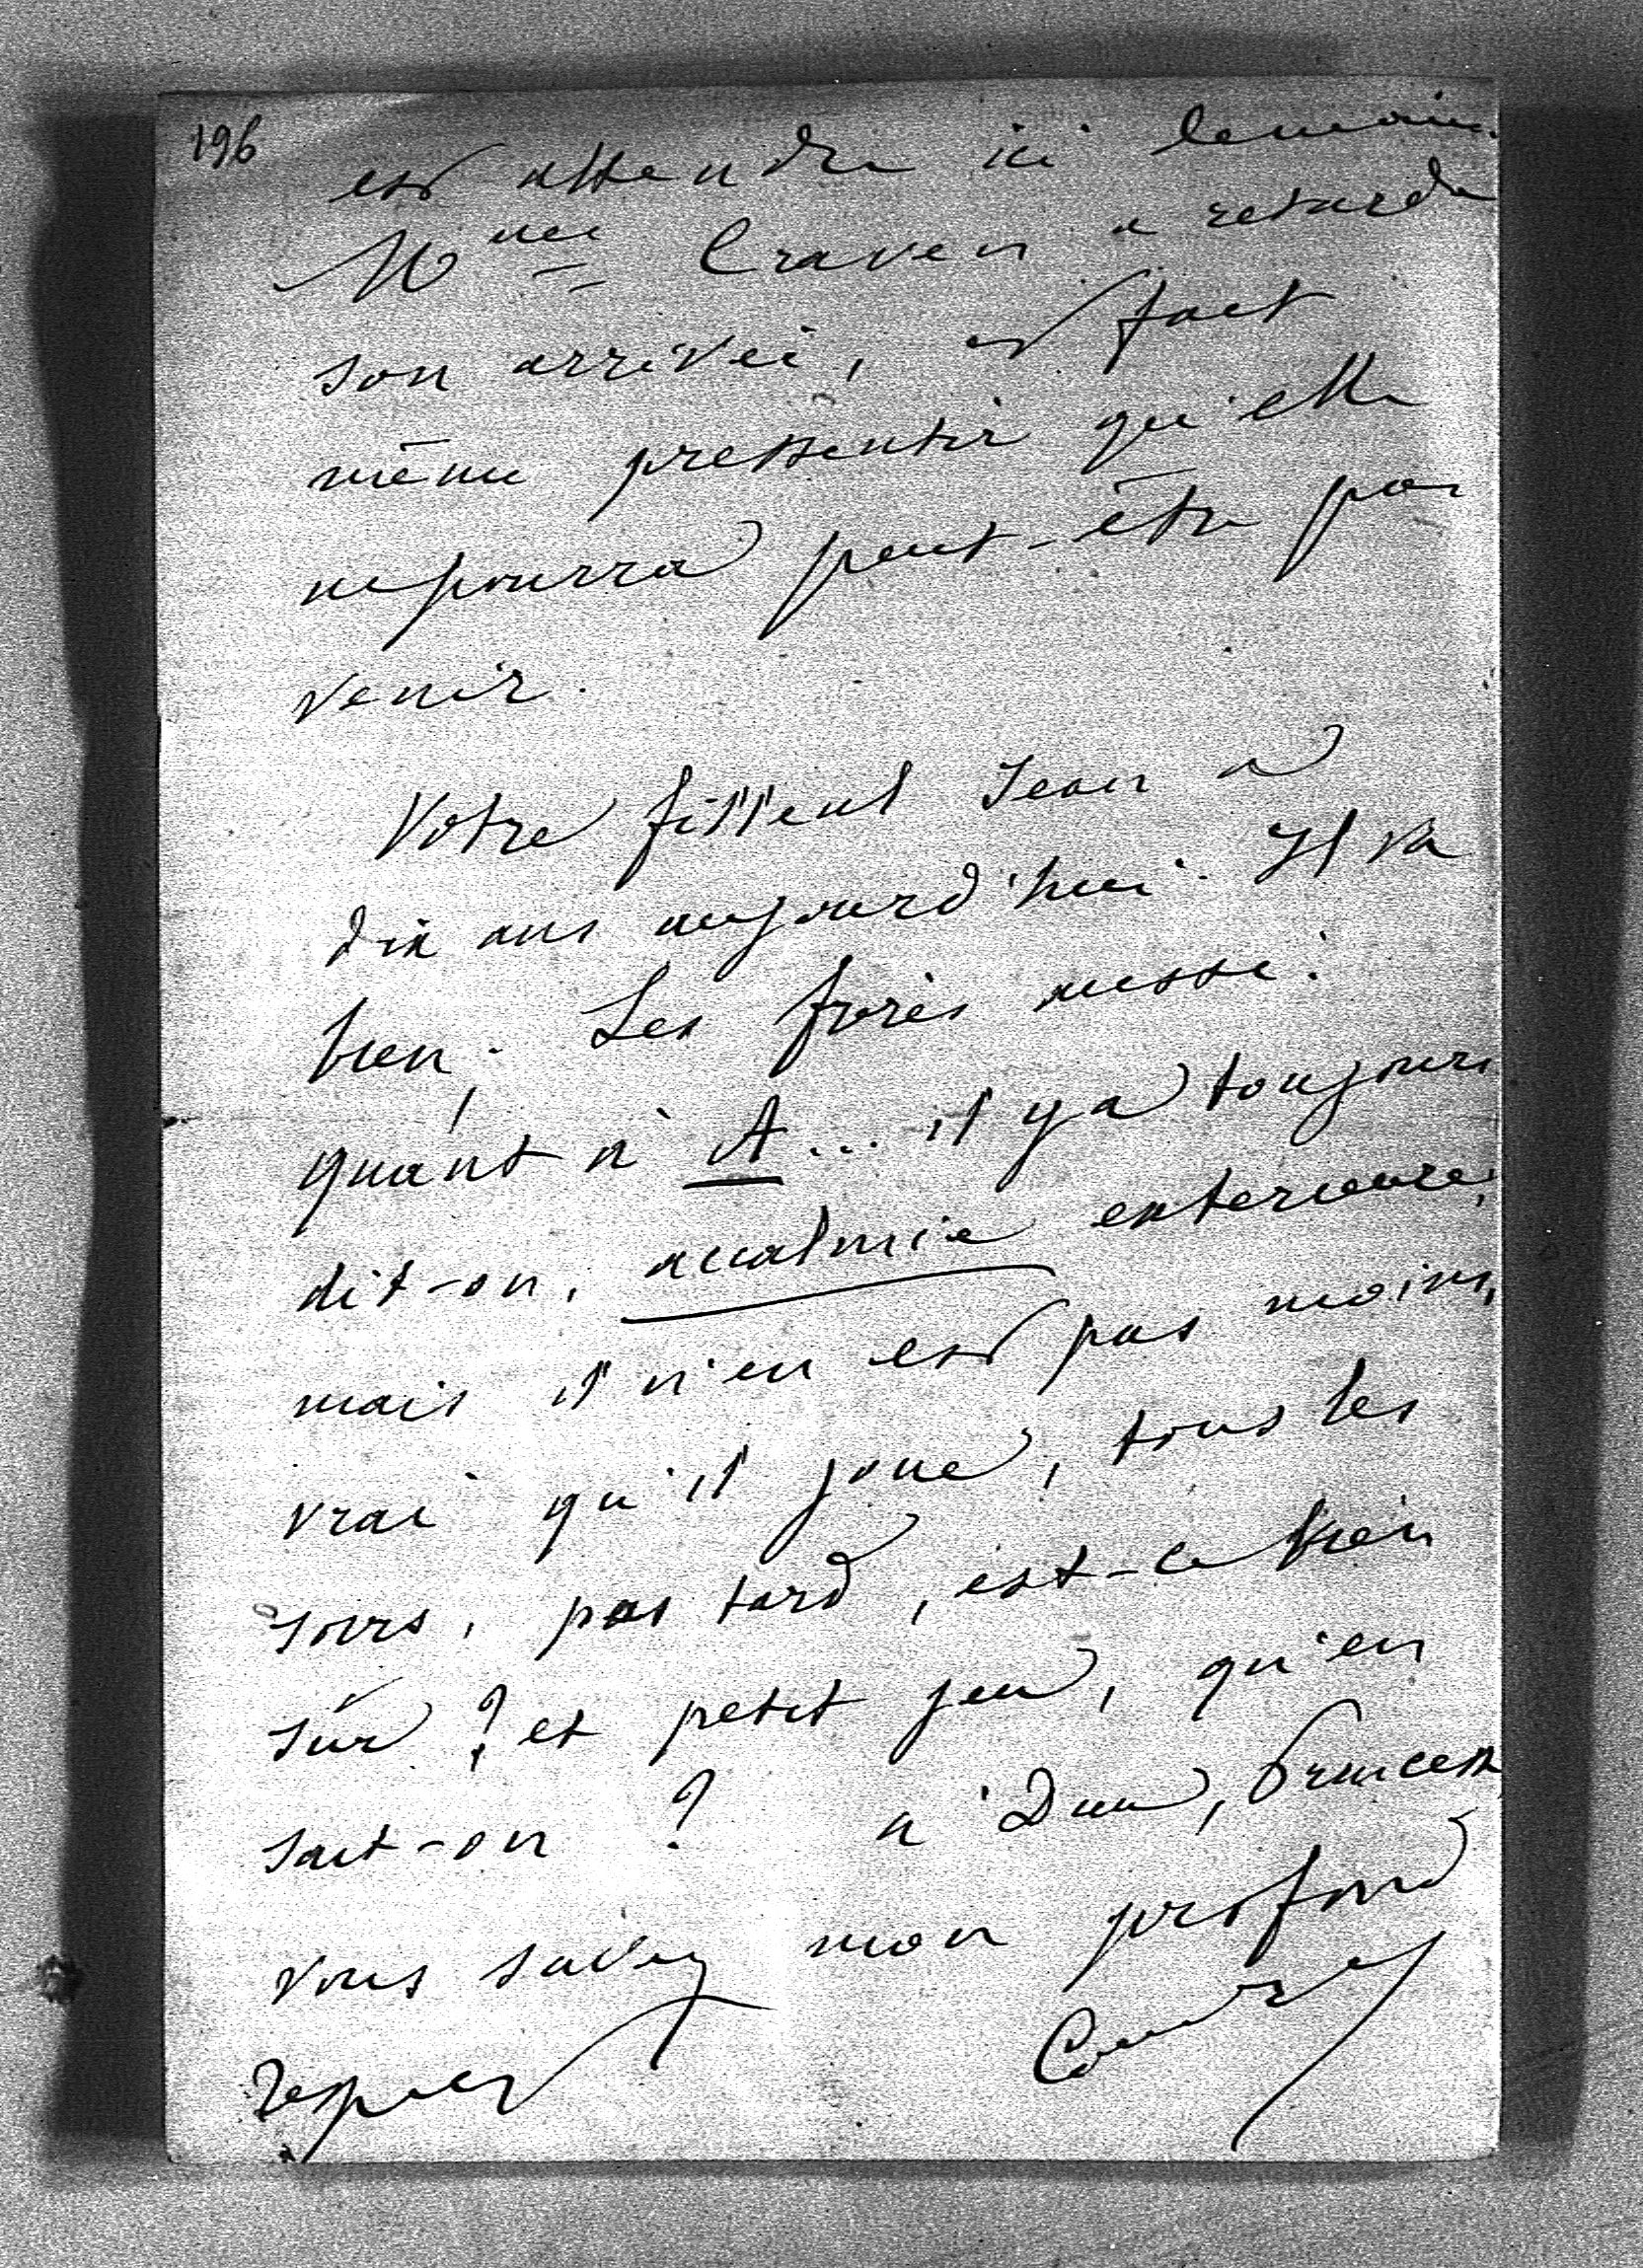 196
est attendu ici demain.
Mme Craven a retardé
son arrivée, et fait
même pressentir qu'elle
ne pourra peut-être pas
venir.
Votre filleul Jean a
dix ans aujourd'hui. Il va
bien. Les frères aussi.
quant à A... il y a toujours
dit-on, accalmie exterieure,
mais il n'en est pas moins
vrai qu'il joue, tous les
soirs, pas tard, est-ce bien
sûr ? et petit jeu, qu'en
sait-on ? a Dieu, Princesse
vous savez mon profond
respect